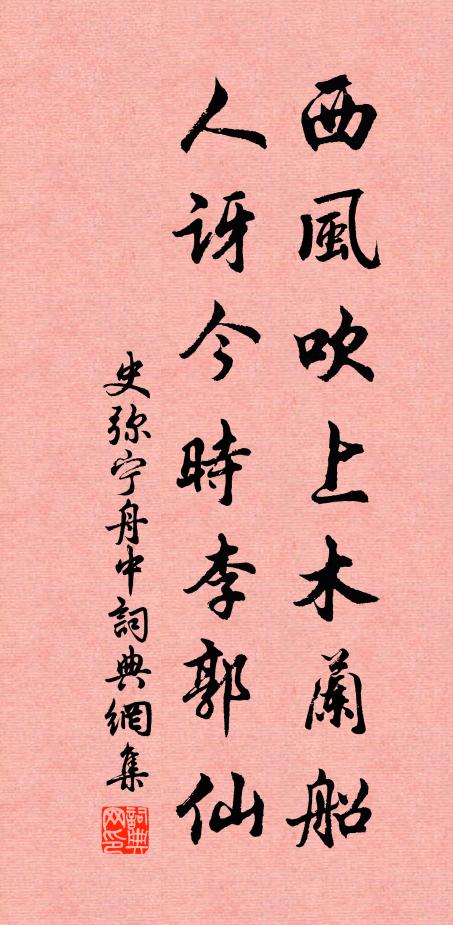 西風吹上木蘭船
人訝今時李郭仙
史弥宁舟中詞典網集
詞典網印